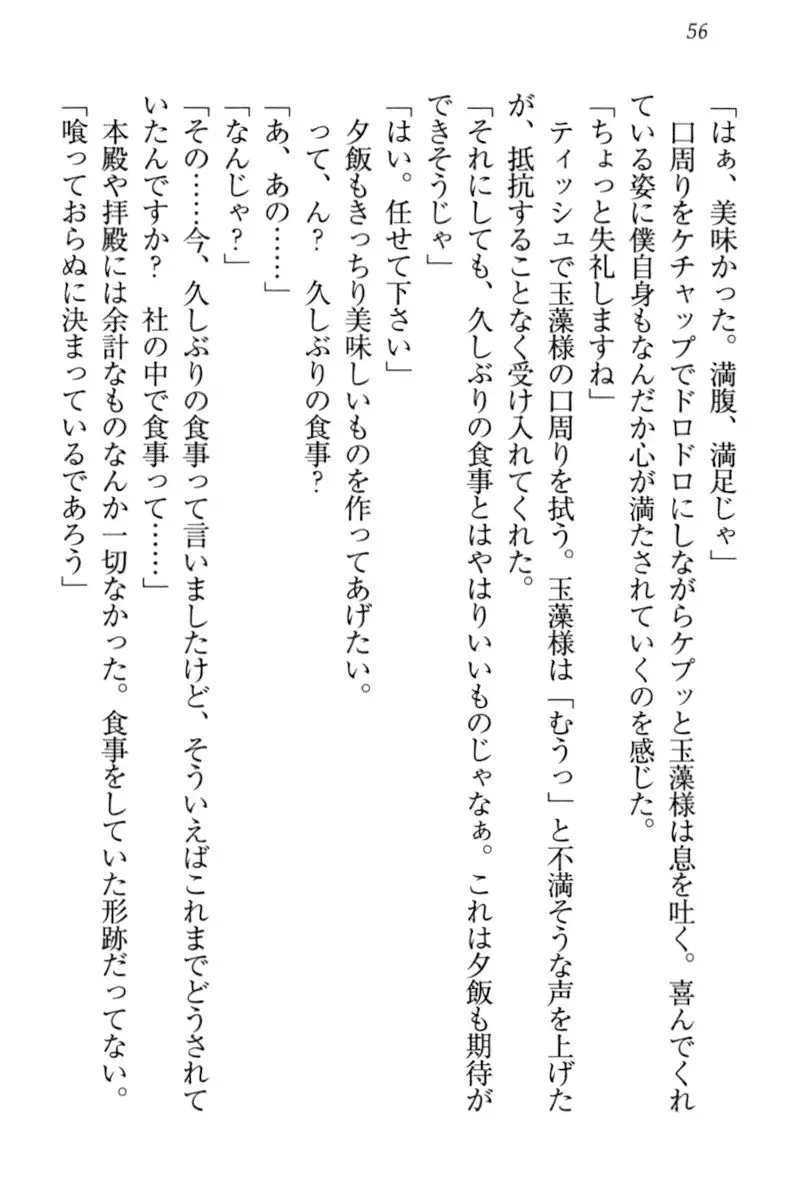 56
「はぁ、美味かった。満腹、満足じゃ」
口周りをケチャップでドロドロにしながらケプッと玉藻様は息を吐く。喜んでくれ
ている姿に僕自身もなんだか心が満たされていくのを感じた。
「ちょっと失礼しますね」
ティッシュで玉藻様の口周りを拭う。玉藻様は「むうっ」と不満そうな声を上げた
が、抵抗することなく受け入れてくれた。
「それにしても、久しぶりの食事とはやはりいいものじゃなぁ。これは夕飯も期待が
できそうじゃ」
「はい。任せて下さい」
夕飯もきっちり美味しいものを作ってあげたい。
って、ん？　久しぶりの食事？
「あ、あの……」
「なんじゃ？」
「その……今、久しぶりの食事って言いましたけど、そういえばこれまでどうされて
いたんですか？　社の中で食事って……」
本殿や拝殿には余計なものなんか一切なかった。食事をしていた形跡だってない。
「喰っておらぬに決まっているであろう」